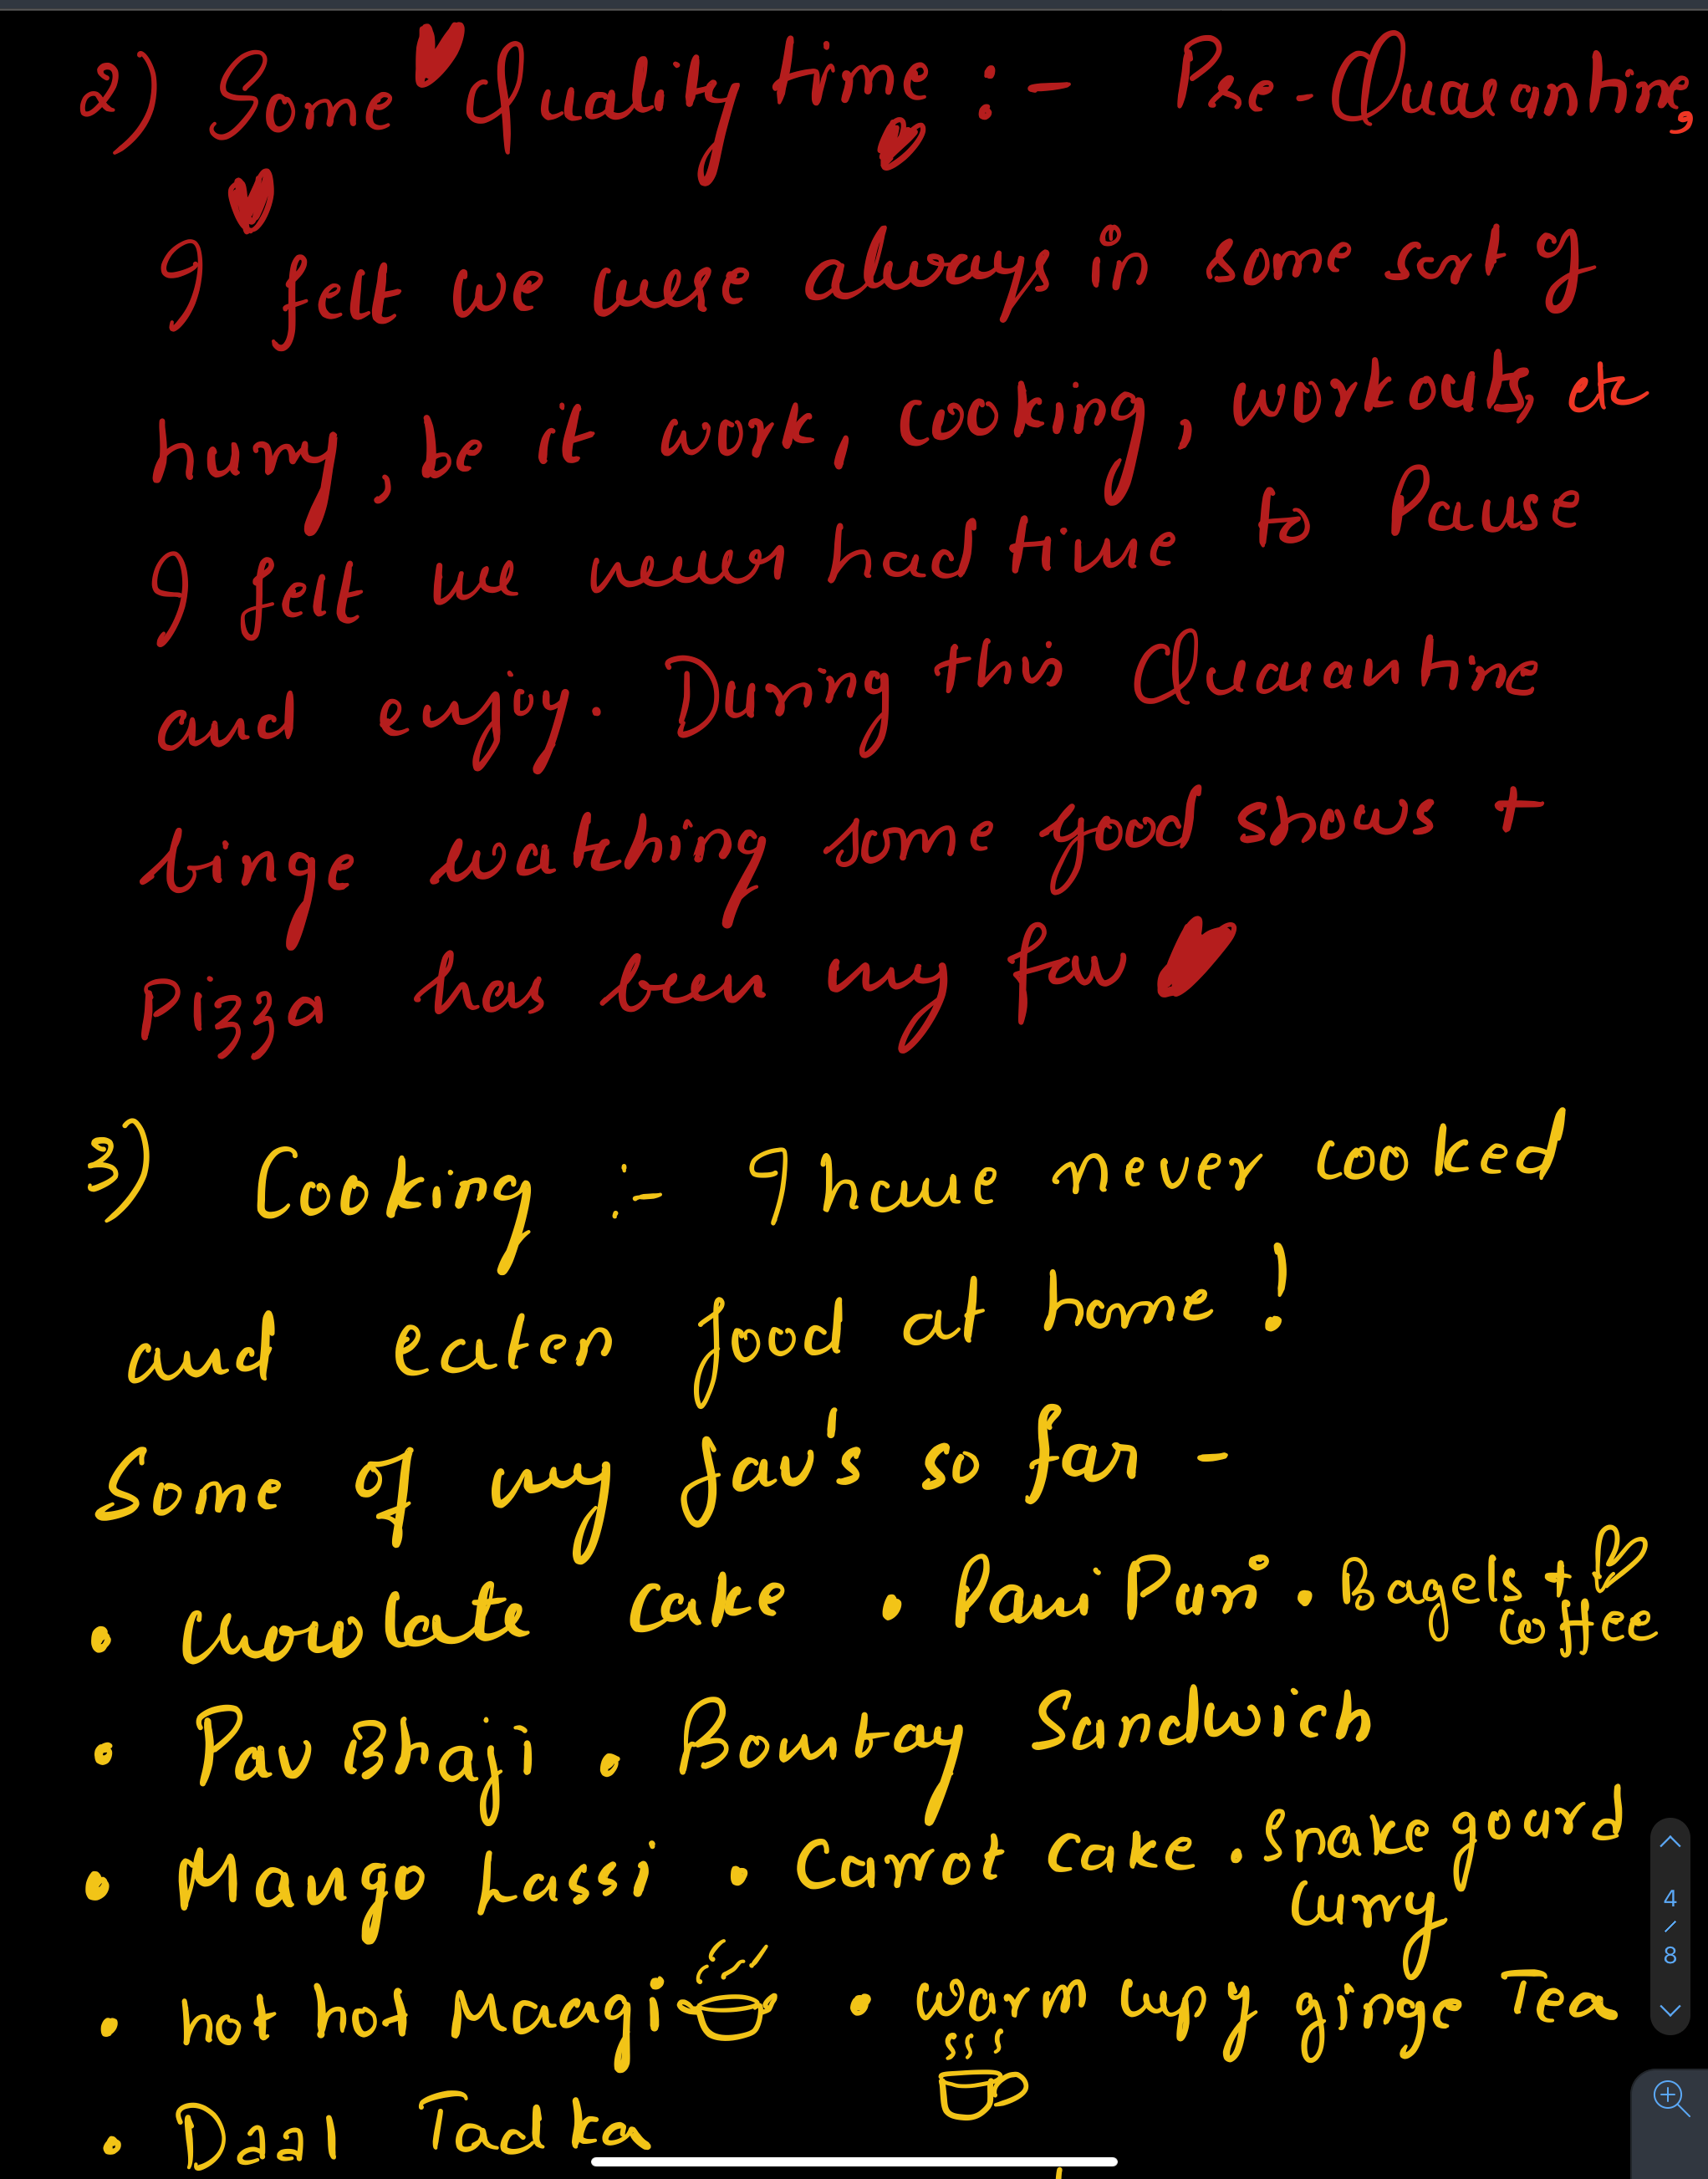 2) Some Quality time :- Pre-Quarantine,
I felt we were always in some sort of
hurry, be it work, cooking, workouts, etc
I felt we never had time to Pause
and enjoy. During this Quarantine
binge watching some good shows +
Pizza has been my fav
3) Cooking :- I have never cooked
and eaten food at home!
Some of my fav's so far -
• chocolate cake • Pani Puri • Bagels +
coffee
• Pav Bhaji • Bombay Sandwich
• Mango Lassi • Carrot cake • Snake gourd
curry
• hot hot Maagi • warm cupy ginge Tea
• Daal Tadka
4
/
8